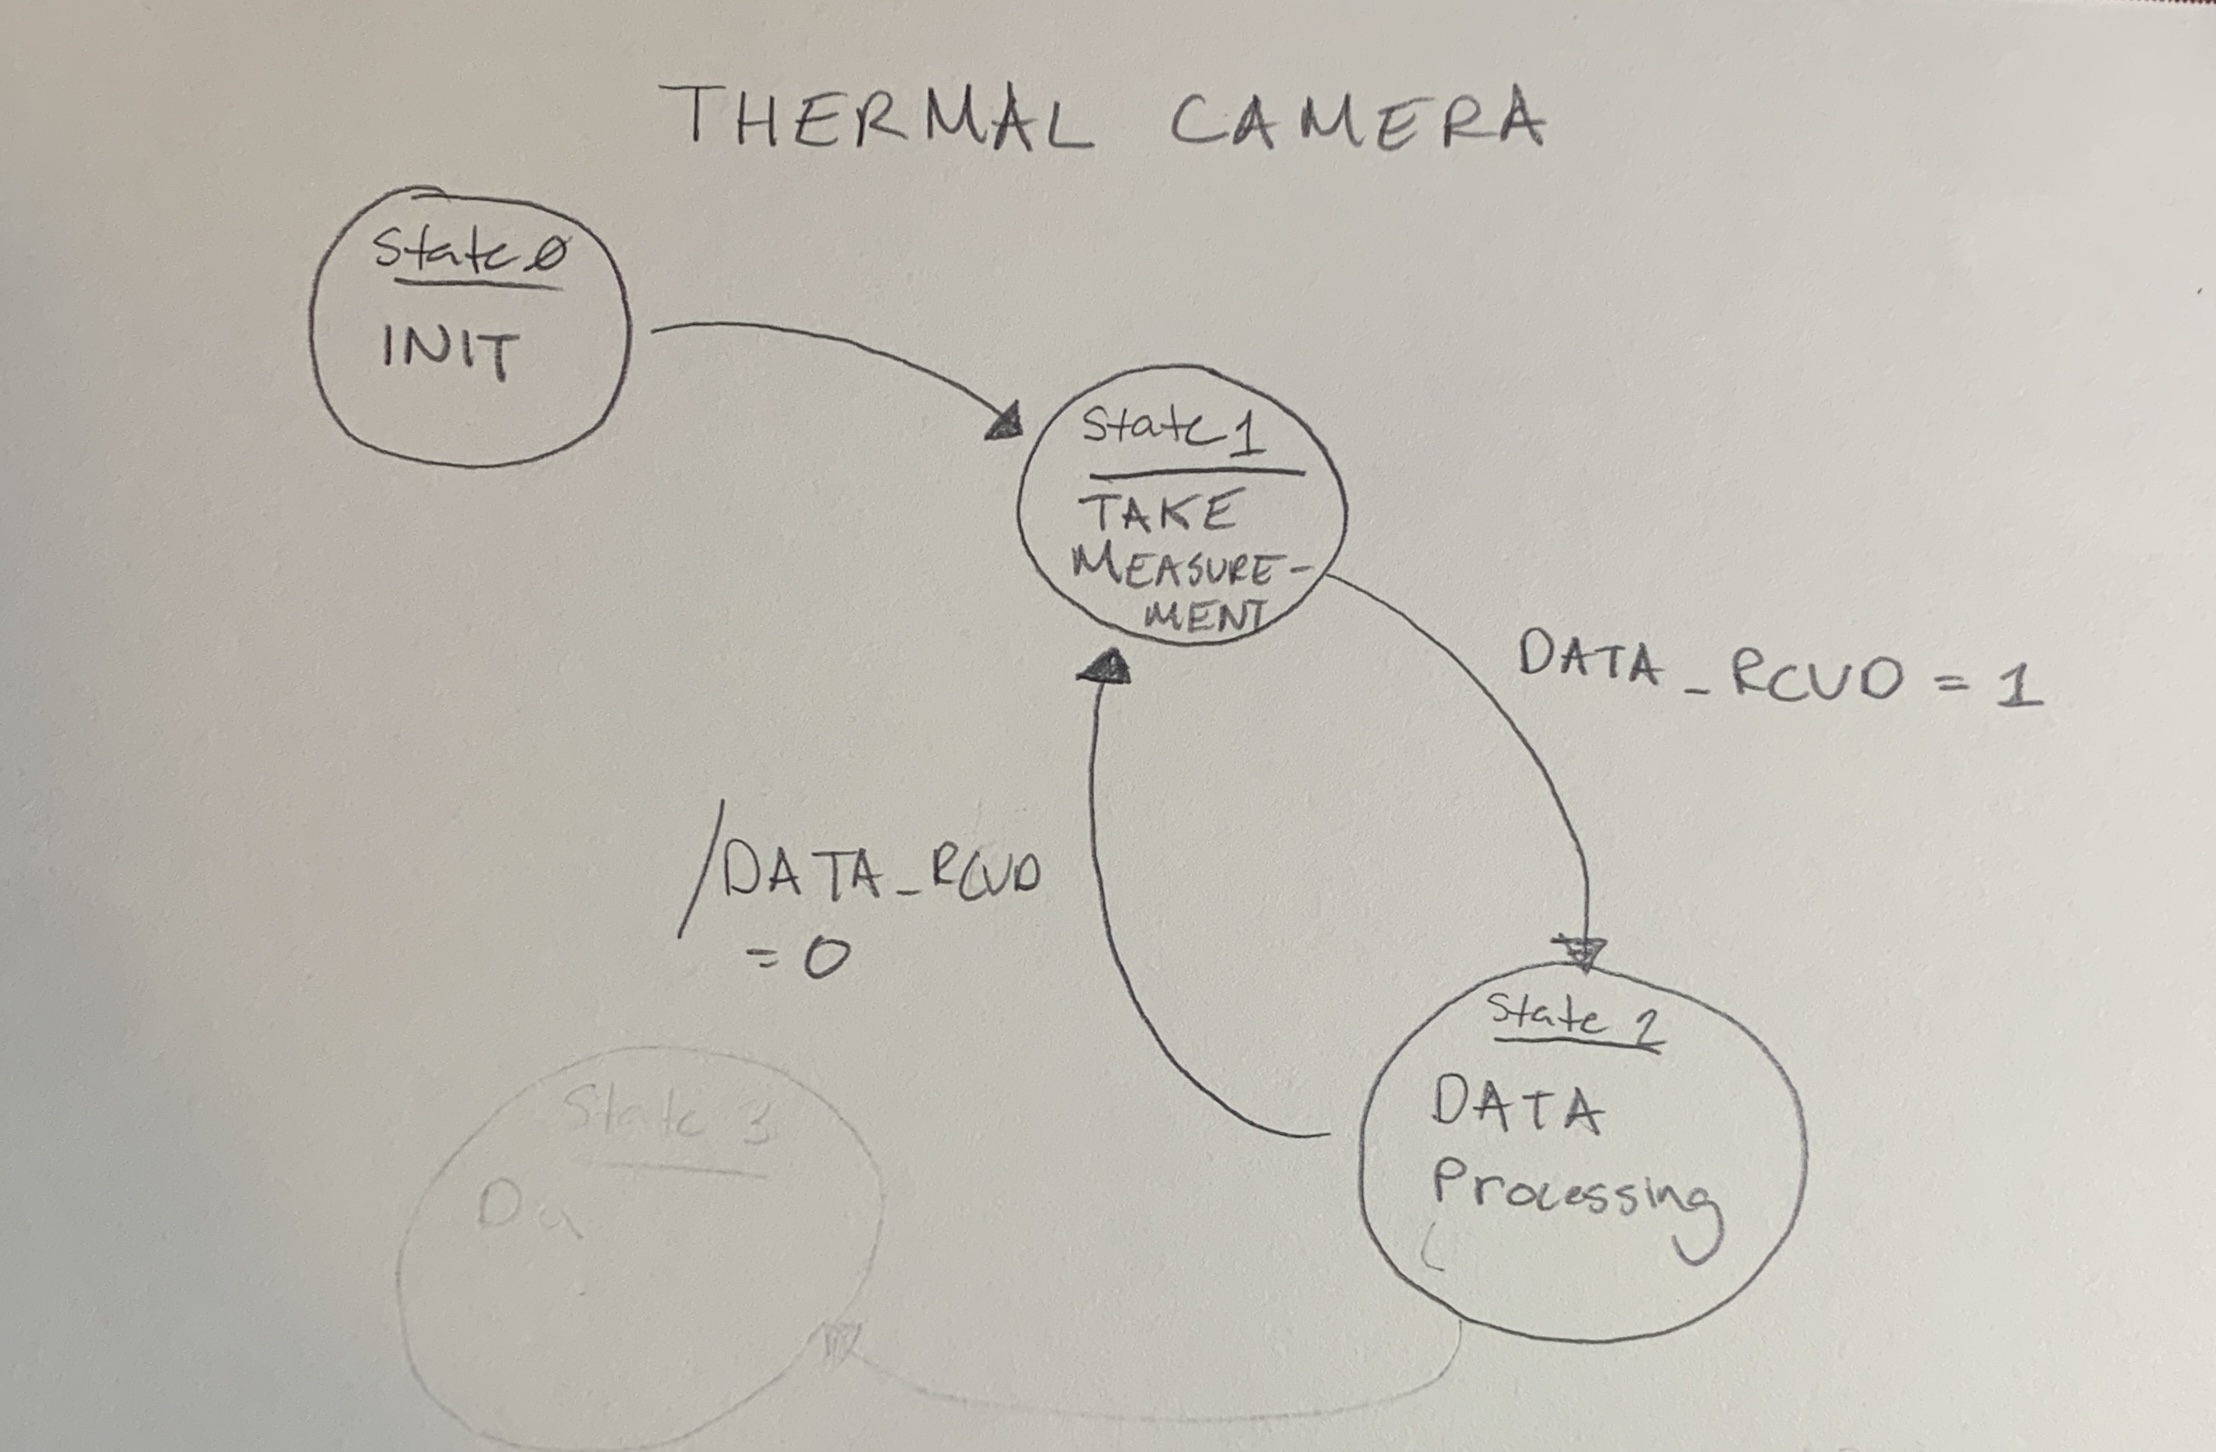 THERMAL CAMERA
State 0
INIT
State 1
TAKE
MEASURE-
MENT
DATA_RCVD = 1
/DATA_RCVD
= 0
State 2
DATA
Processing
State 3
Da